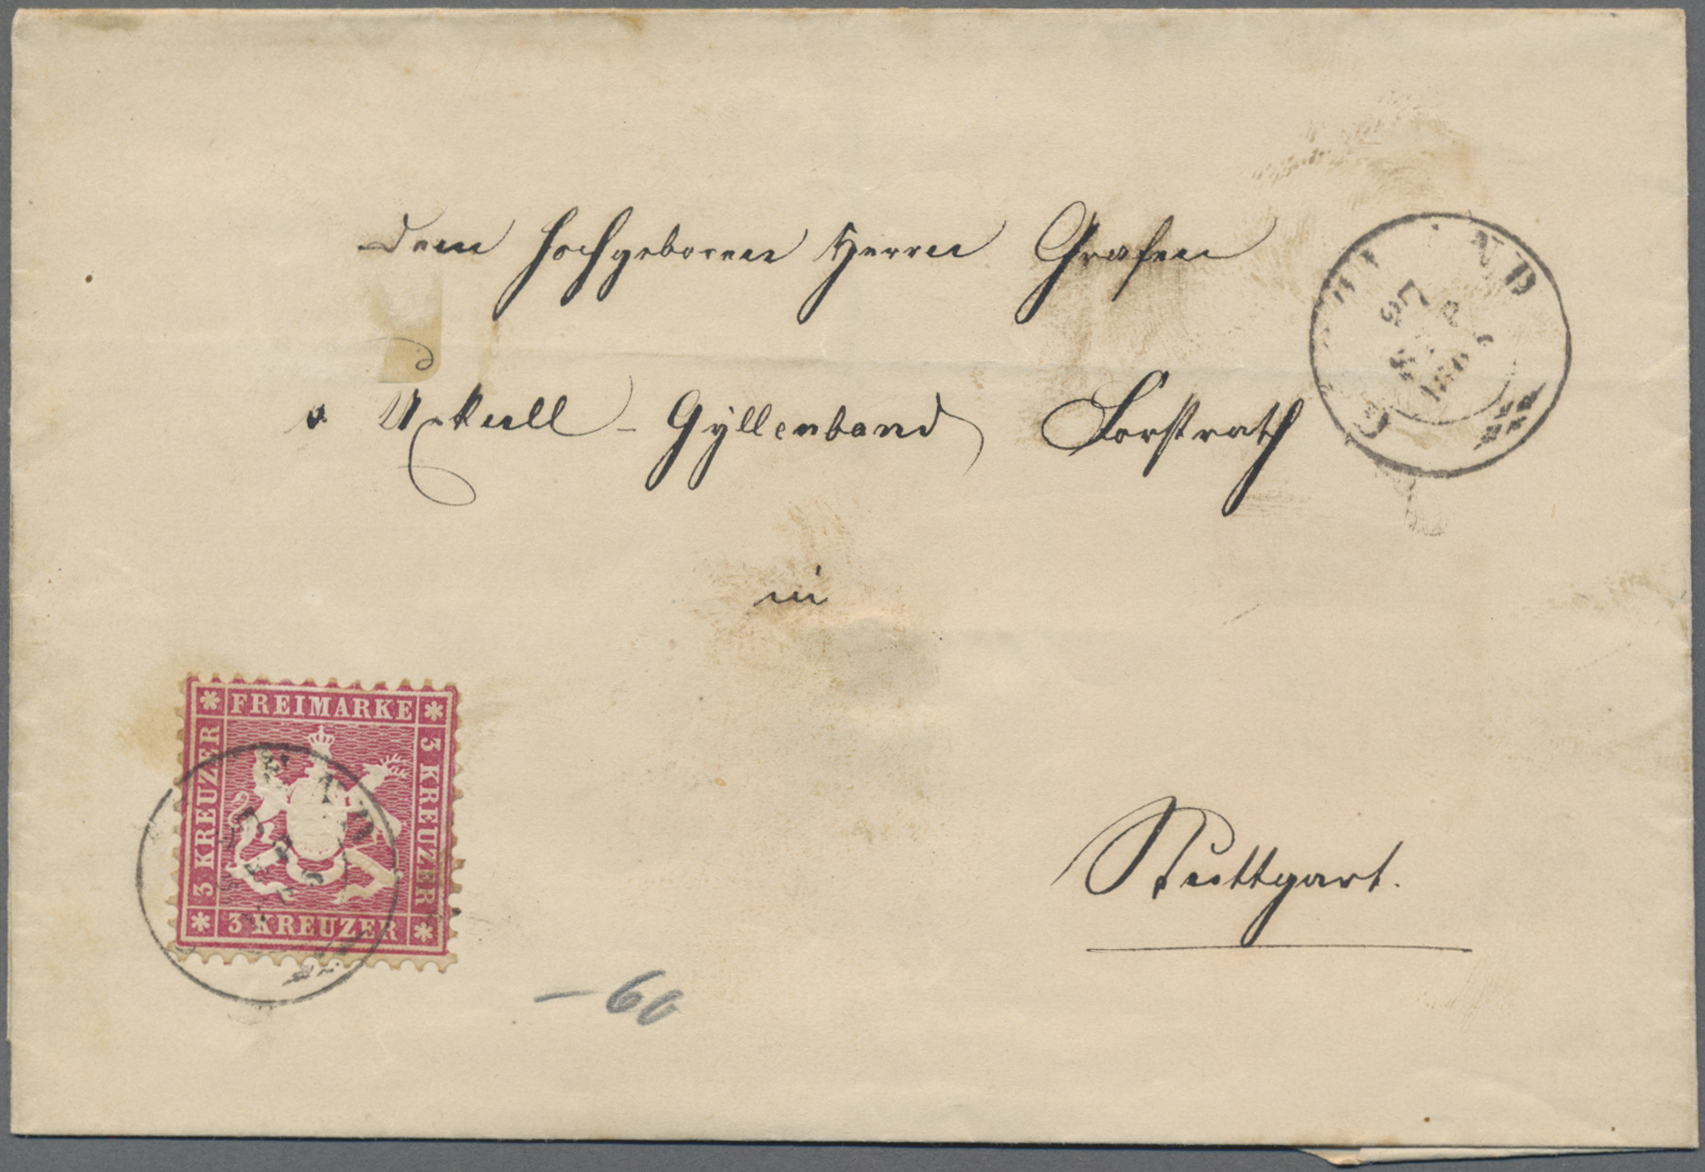 Dem Hochgeboren Herrn Grafen
v Üxkull - Gyllenband Forstrath
in
Stuttgart.
FREIMARKE
3 KREUZER
3 KREUZER
3 KREUZER
- 60
27